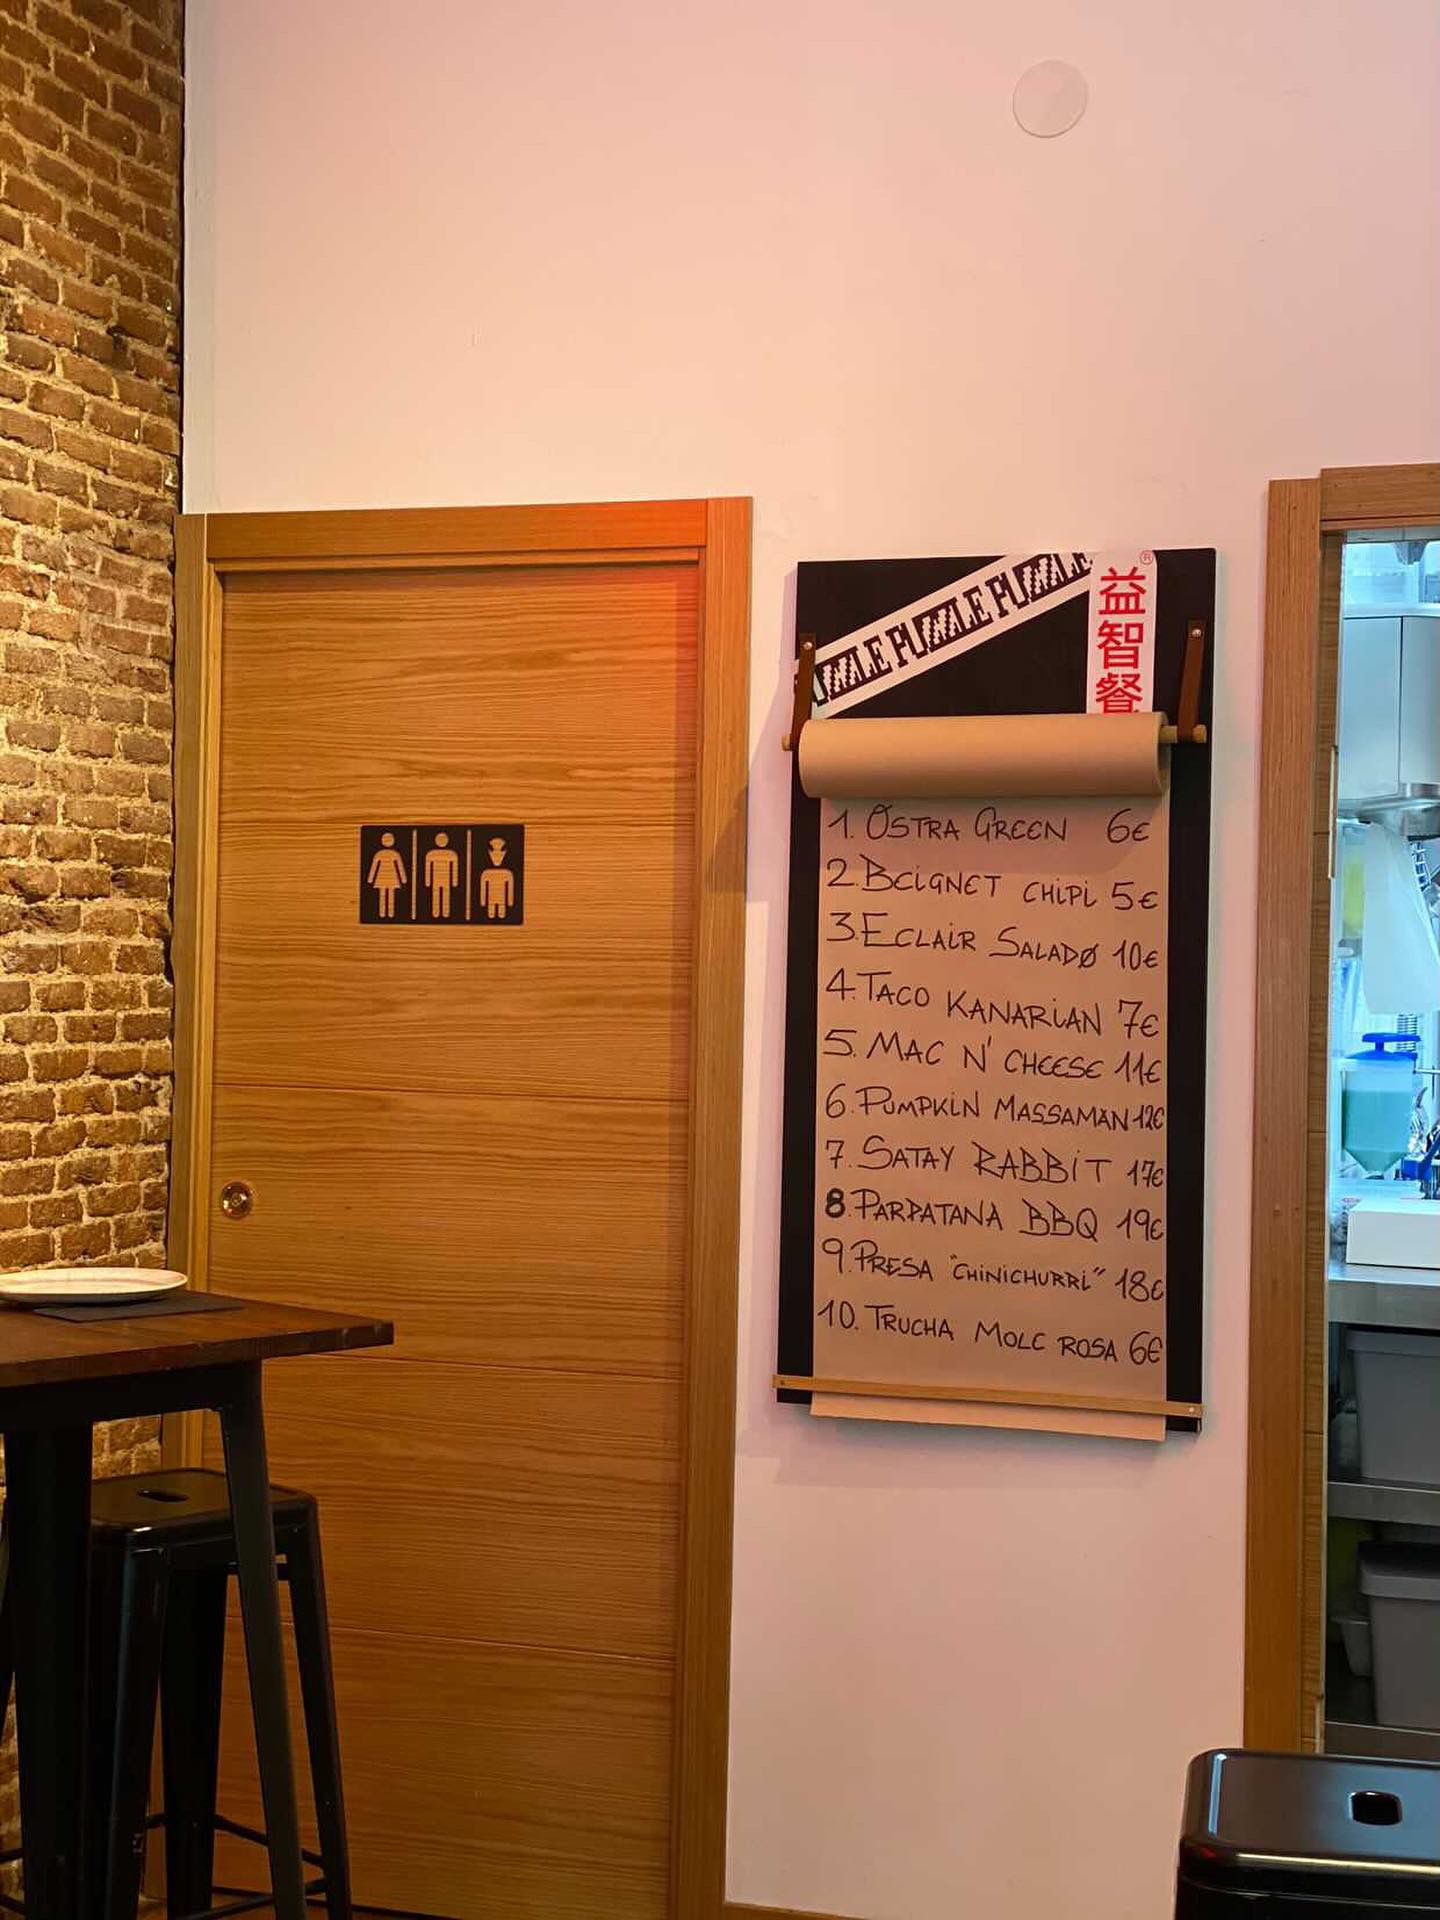 PUZZLE PUZZLE PUZZLE
益智餐
®
1. OSTRA GREEN 6€
2. BEIGNET CHIPI 5€
3. ECLAIR SALADØ 10€
4. TACO KANARIAN 7€
5. MAC N' CHEESE 11€
6. PUMPKIN MASSAMAN 12€
7. SATAY RABBIT 17€
8. PARPATANA BBQ 19€
9. PRESA "CHINICHURRI" 18€
10. TRUCHA MOLE ROSA 6€